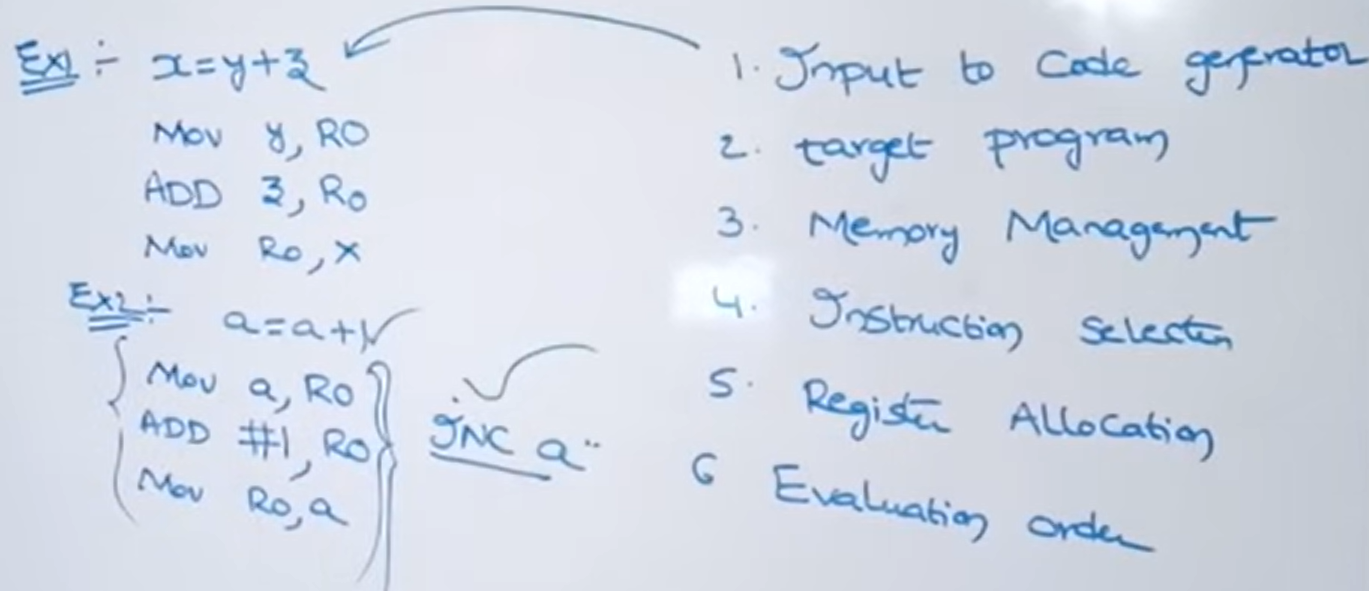 Ex1 :- x=y+z
Mov y, R0
ADD z, R0
Mov R0, x
Ex2 :- a=a+1
Mov a, R0
ADD #1, R0
Mov R0, a
INC a
1. Input to Code generator
2. target program
3. Memory Management
4. Instruction Selection
5. Register Allocation
6 Evaluation order